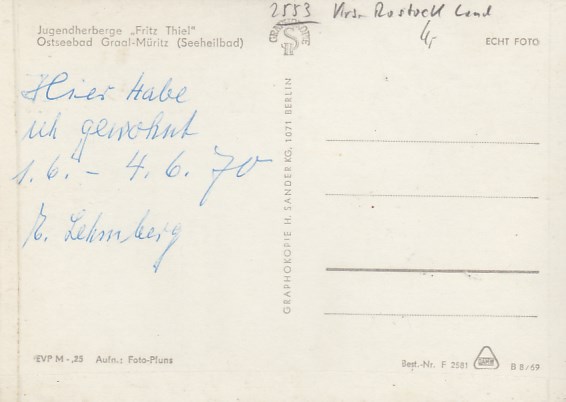 2553 Krs. Rostock Land
4,-
Jugendherberge „Fritz Thiel"
Ostseebad Graal-Müritz (Seeheilbad)
ECHT FOTO
Hier habe
ich gewohnt
1.6. - 4.6. 70
Lehmberg
GRAPHOKOPIE H. SANDER KG, 1071 BERLIN
EVP M -,25 Aufn.: Foto-Pluns
Best.-Nr. F 2581 B 8/69